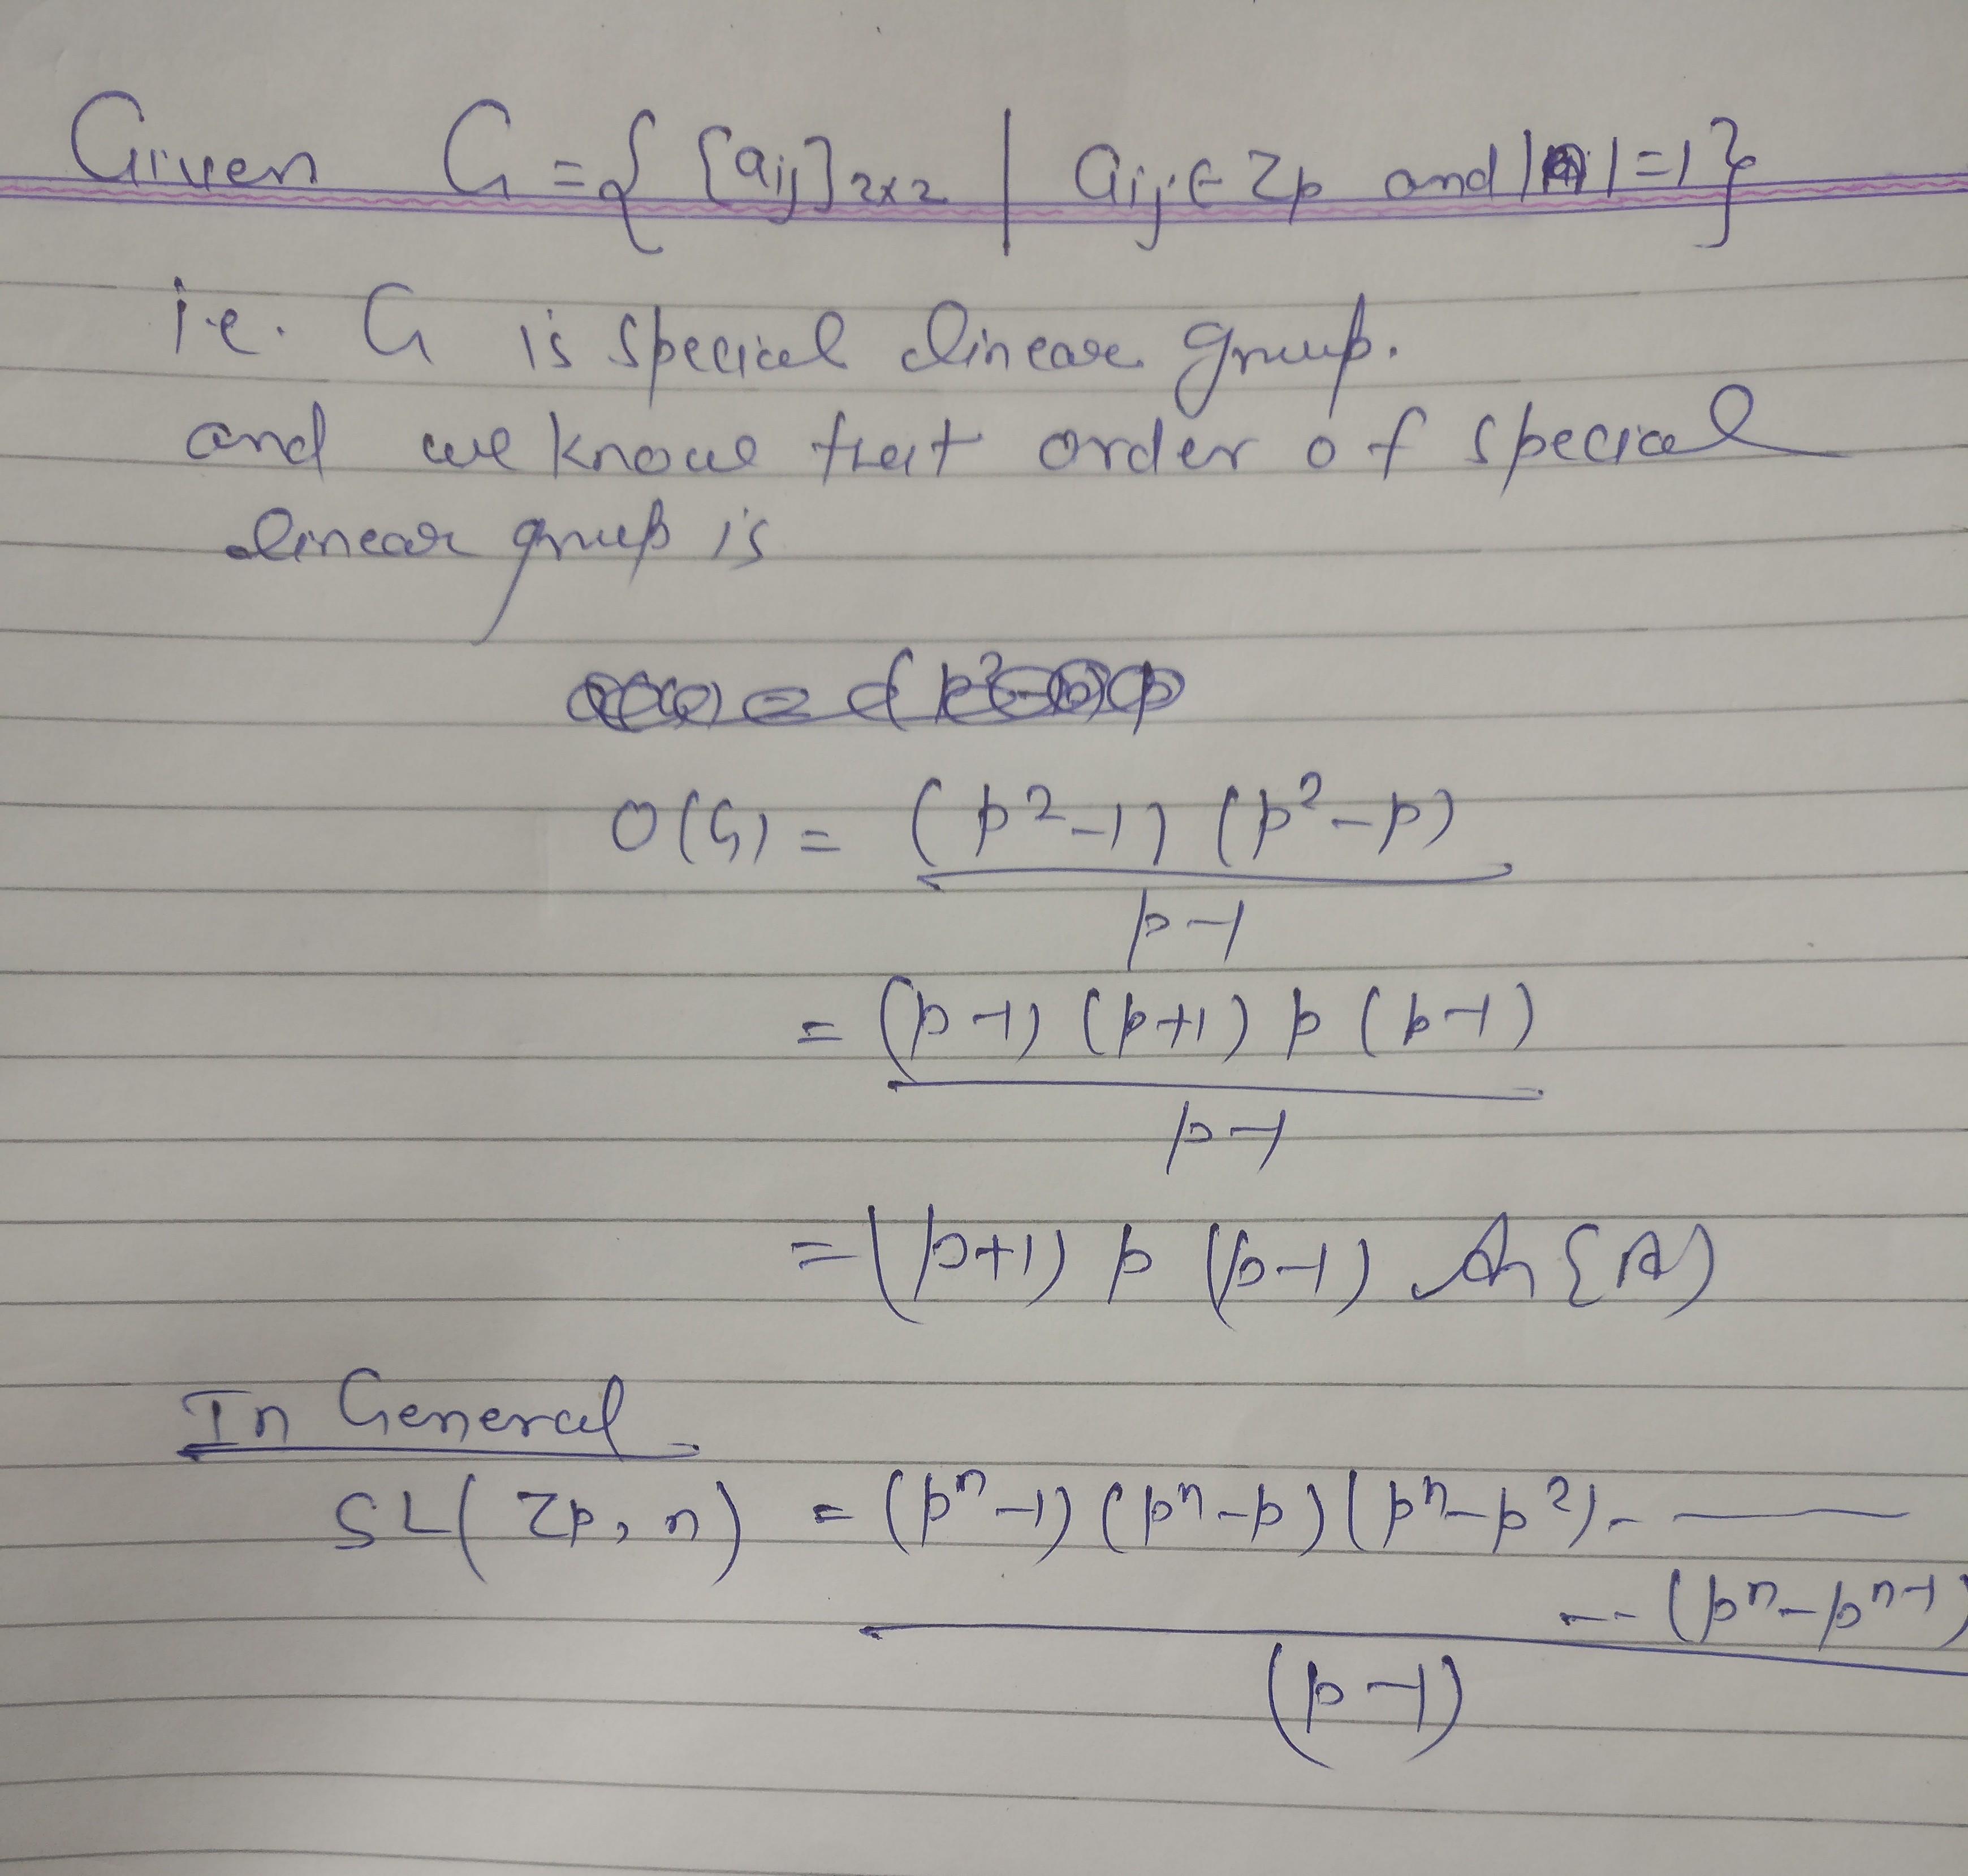 Given G = { [aij]2x2 | aij ∈ Zp and |A| = 1 }
i.e. G is special linear group.
and we know that order of special
linear group is
O(G) = (p²-1) (p²-p)
p-1
= (p-1) (p+1) p (p-1)
p-1
= (p+1) p (p-1) An {A)
In General
SL( Zp, n) = (pⁿ-1) (pⁿ-p) (pⁿ-p²)- ——
--- (pⁿ-pⁿ⁻¹)
(p-1)